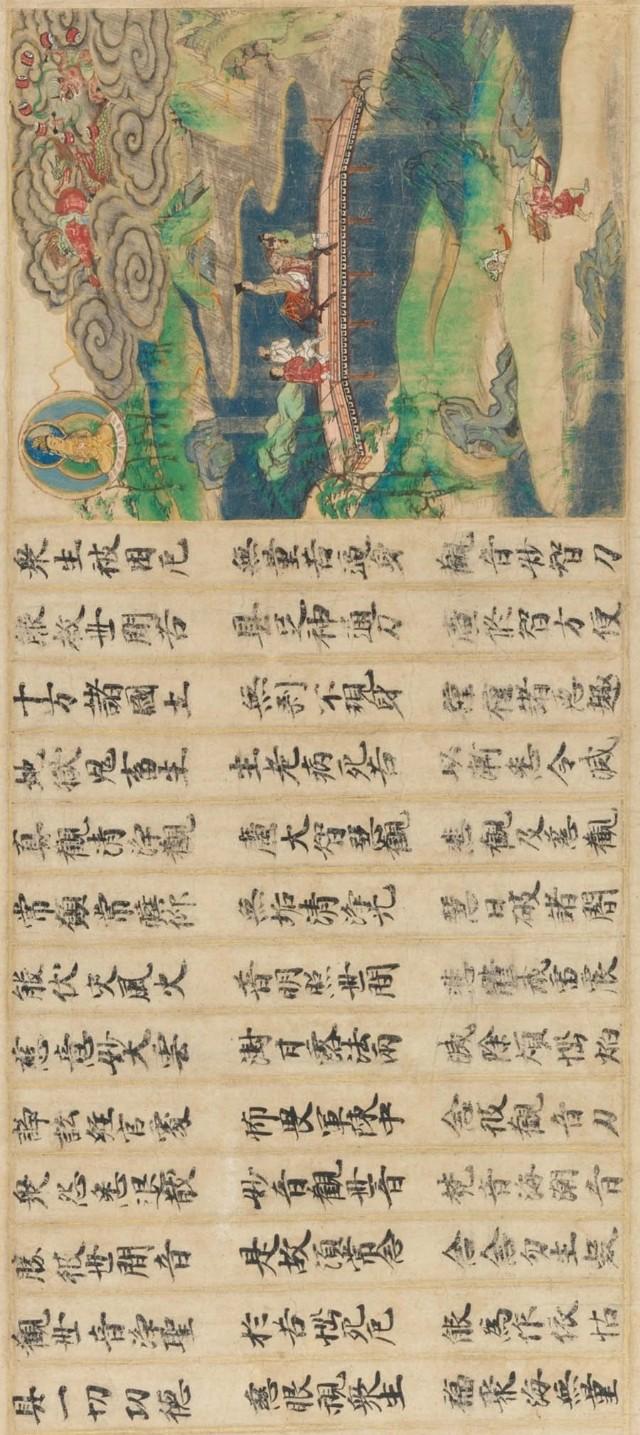 衆生被困厄 無量苦逼身 觀音妙智力
能救世間苦 具足神通力 廣修智方便
十方諸國土 無刹不現身 種種諸惡趣
地獄鬼畜生 生老病死苦 以漸悉令滅
真觀清淨觀 廣大智慧觀 悲觀及慈觀
常願常瞻仰 無垢清淨光 慧日破諸闇
能伏災風火 普明照世間 悲體戒雷震
慈意妙大雲 澍甘露法雨 滅除煩惱焰
諍訟經官處 怖畏軍陣中 念彼觀音力
衆怨悉退散 妙音觀世音 梵音海潮音
勝彼世間音 是故須常念 念念勿生疑
觀世音淨聖 於苦惱死厄 能為作依怙
具一切功德 慈眼視衆生 福聚海無量